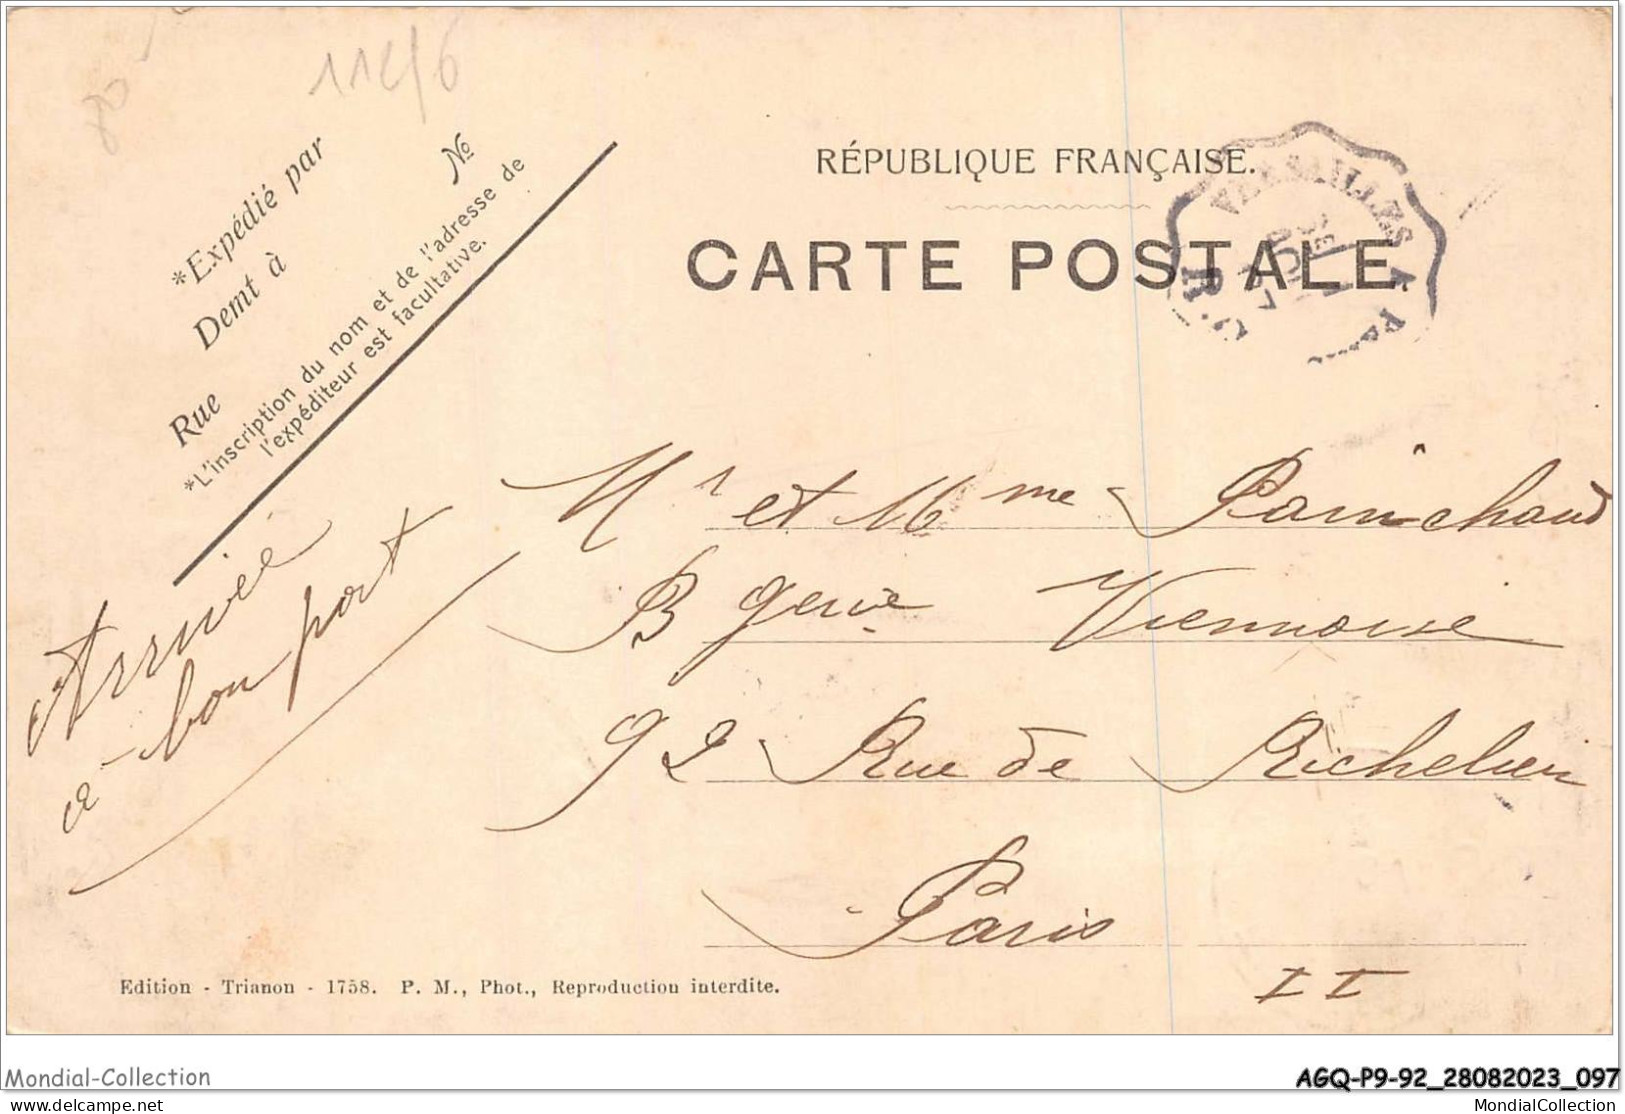 112/6
*Expédié par
Demt à
Rue
No
*L'inscription du nom et de l'adresse de
l'expéditeur est facultative.
RÉPUBLIQUE FRANÇAISE.
CARTE POSTALE.
VERSAILLES A
Arrivée
a bon port
Mr et Mme Painchaud
Bgerie Viennoise
92 Rue de Richelieu
Paris
II
Edition - Trianon - 1758. P. M., Phot., Reproduction interdite.
Mondial-Collection
AGQ-P9-92_28082023_097
MondialCollection